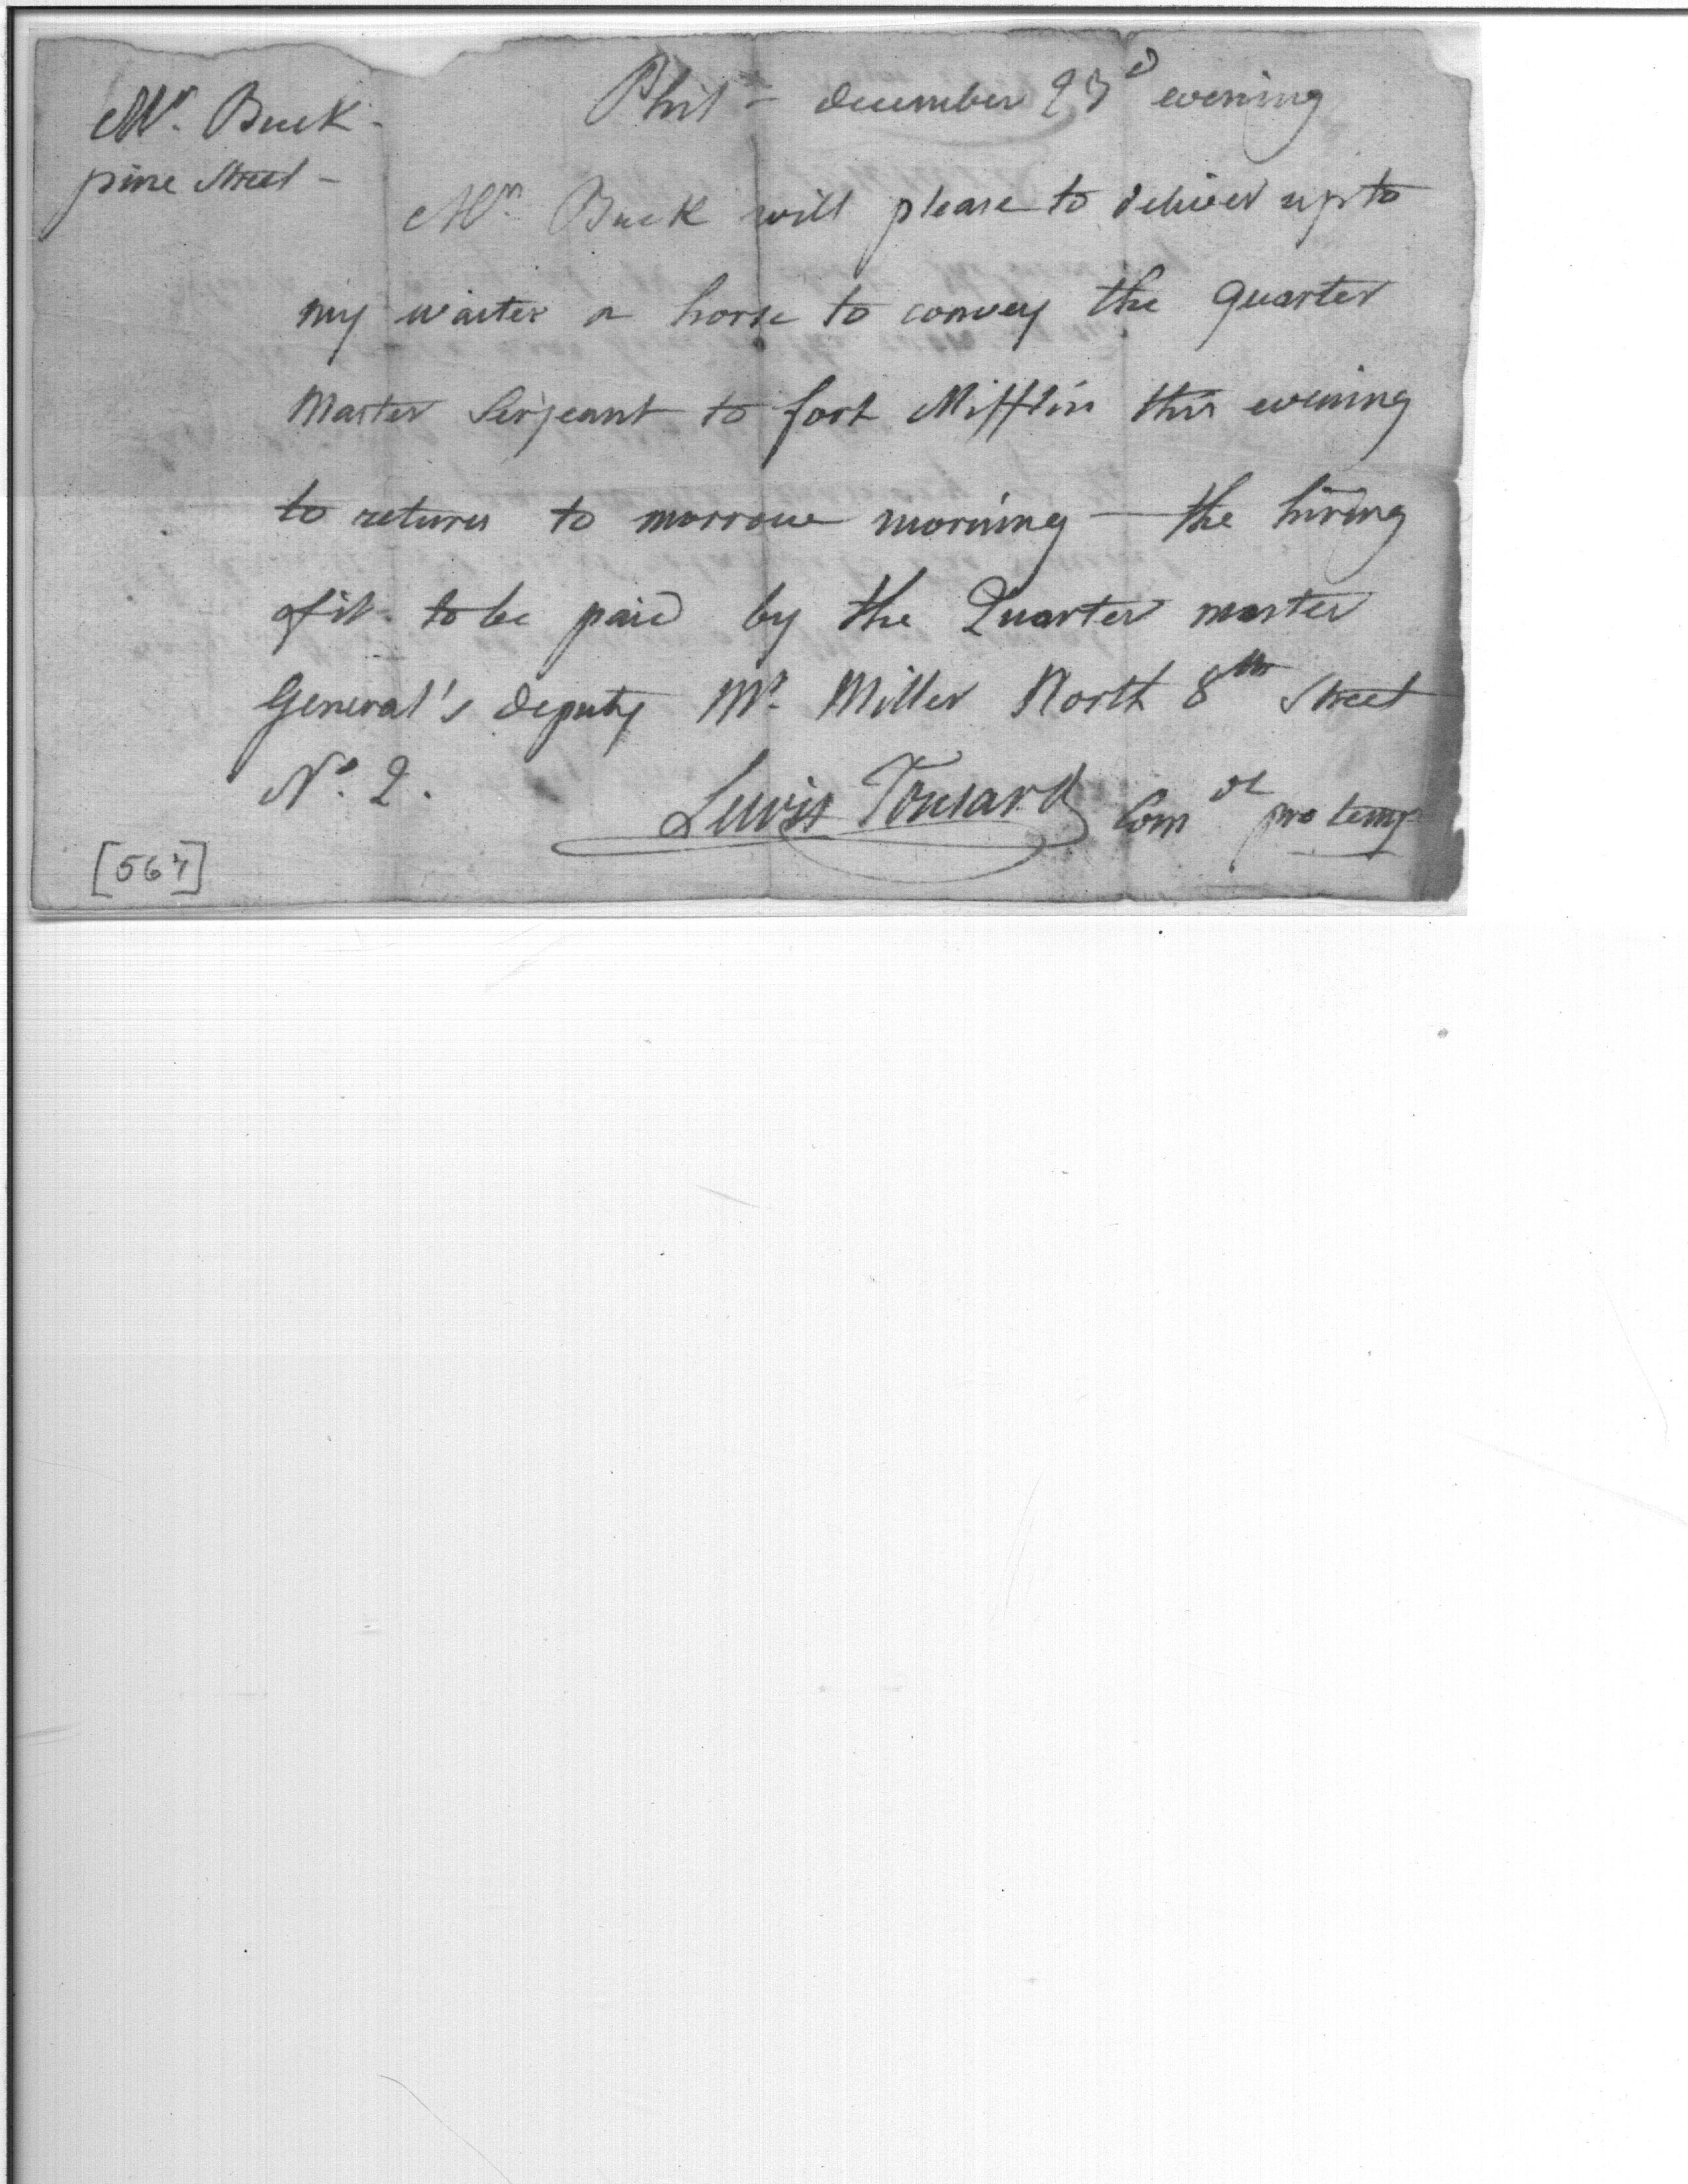 Mr. Buck -
pine Street -
Phila - december 23d evening
Mr. Buck will please to deliver up to
my waiter a horse to convey the quarter
Master Serjeant to fort Mifflin this evening
to return to morrow morning — the hiring
of it to be paid by the Quarter master
General's deputy Mr. Miller North 8th Street
No. 2.
Lewis Tousard Comdt pro temp
[567]